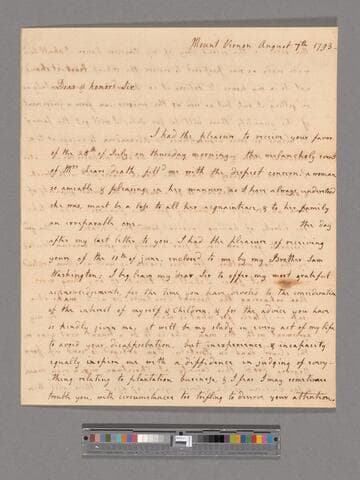 Mount Vernon August 7th 1793
Dear & honord Sir
I had the pleasure to receive your favor
of the 28th of July, on thursday morning, the melancholy event
of Mrs Lears death, fill'd me with the deepest concern; a woman
so amiable & pleasing in her manners, as I have always understood
she was, must be a loss to all her acquaintance, & to her family
an irreparable one. the day
after my last letter to you, I had the pleasure of receiving
yours of the of June, enclosed to me by my Brother Sam
Washington; I beg leave my dear Sir to offer my most grateful
acknowledgements, for the time you have devoted to the consideration
of the interest of myself & Children, & for the advice you have
so kindly given me, it will be my study in every act of my life
to avoid your disapprobation, but inexperience & incapacity
equally inspire me with a diffidence in judging of every-
thing relating to plantation business, & I fear I may sometimes
trouble you, with circumstances too trifling to deserve your attention,